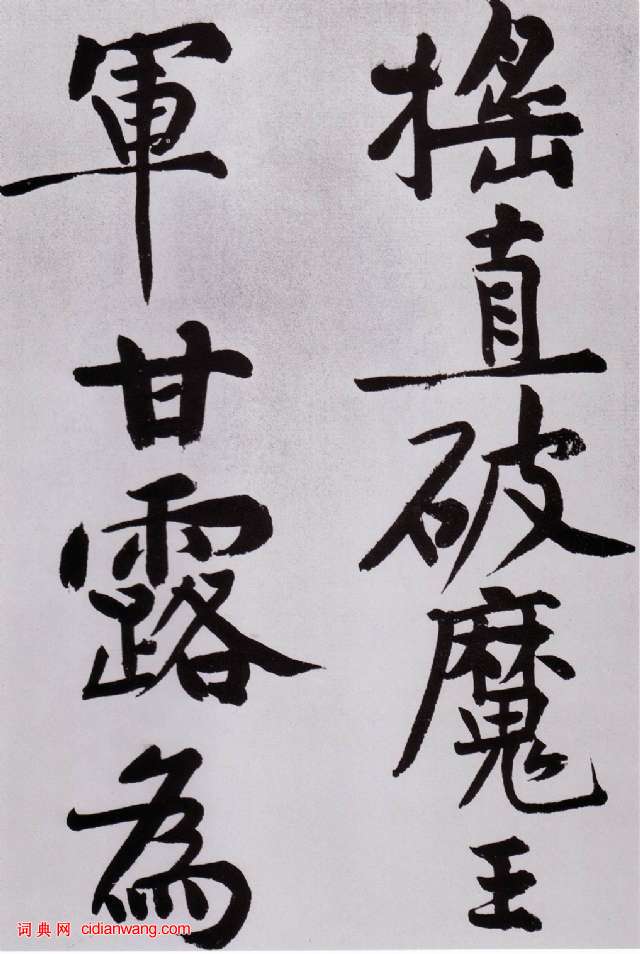 搖直破魔王
軍甘露為
词典网 cidianwang.com